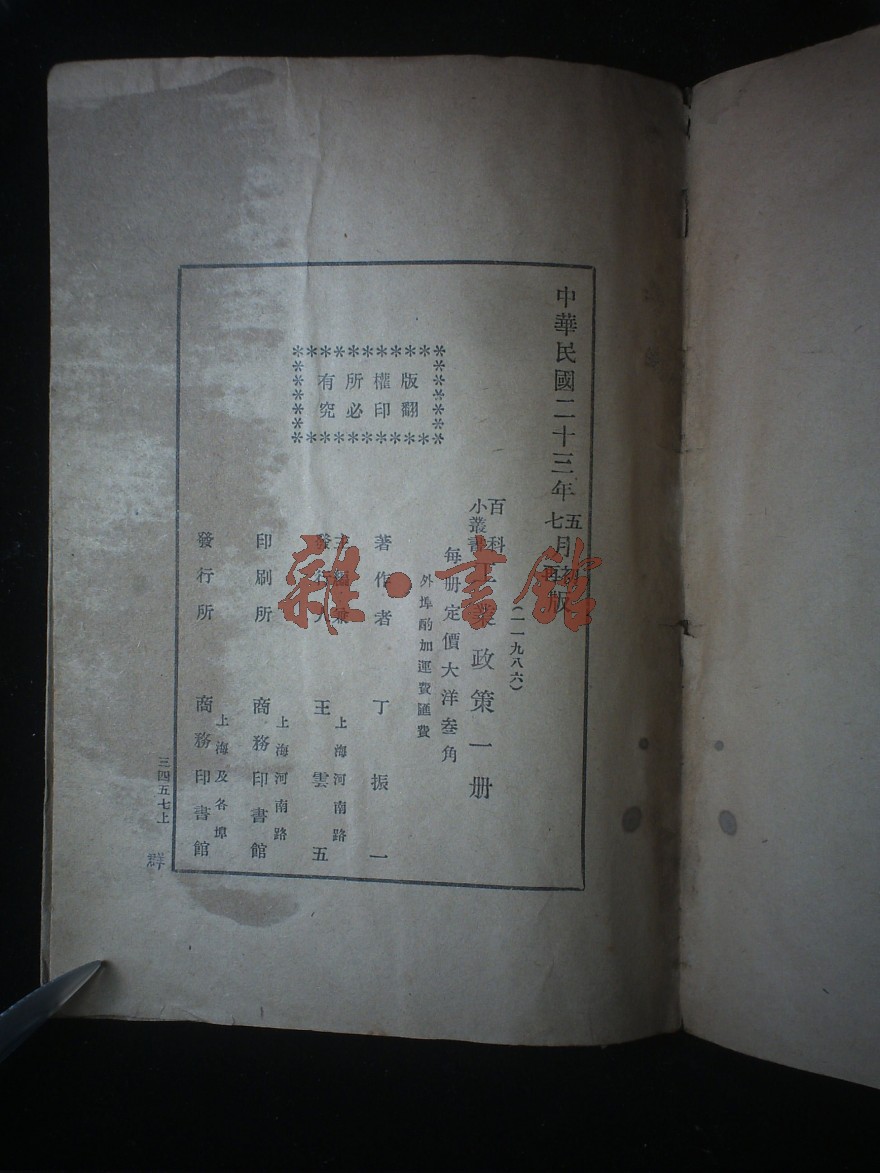 中華民國二十三年五七月初再版
(二一九八六)
百科小叢書 工業政策一册
每册定價大洋叁角
外埠酌加運費匯費
版權所有
翻印必究
著作者 丁振一
主編兼發行人 王雲五
上海河南路
印刷所 商務印書館
上海河南路
發行所 商務印書館
上海及各埠
三四五七上
群
雜·書館